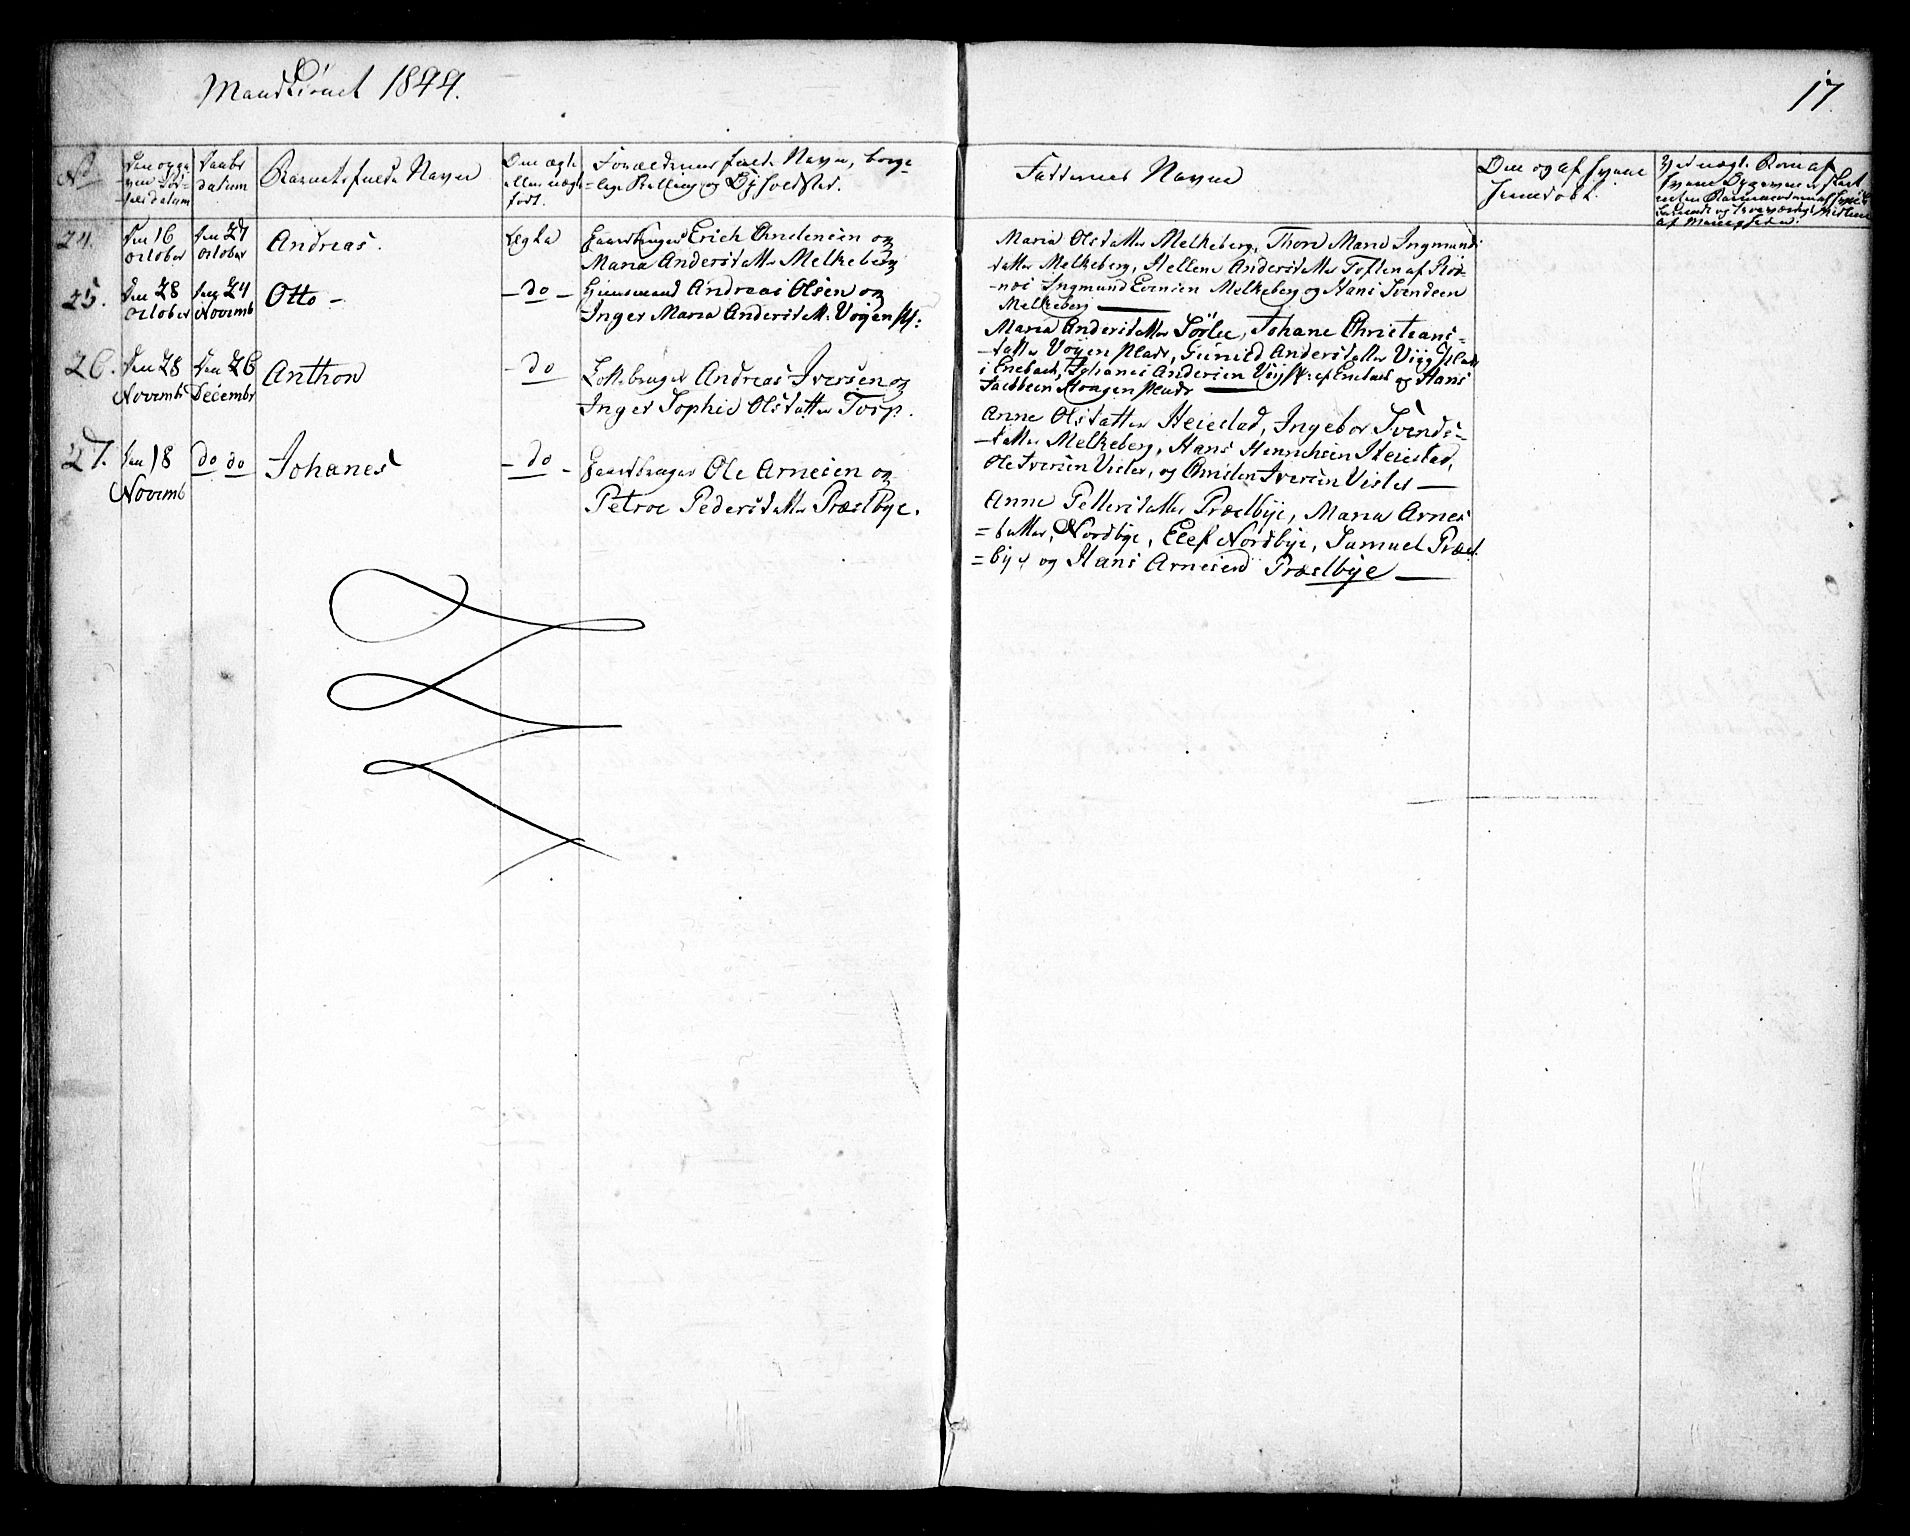 Mandkiønet 1844.
17
No
Daabs
datum
Barnets fulde Navn
Om ægte
eller uægte
født.
Forældrenes fulde Navne, borge-
-lige Stilling og Opholdsted.
Faddernes Navne
Om og af hvem
hjemdøbt.
24.
Den 16
October
Den 27
October
Andreas.
Ægte
Gaardbruger Erich Andersen og
Maria Andersdatter Melkeberg
Maria Olsdatter Melkeberg, Thore Marie Ingmunds
-datter Melkeberg, Hellene Andersdatter Toften af
Ingmund Evensen Melkeberg og Hans Svendsen
Melkeberg
25.
Den 28
October
Den 24
Novemb
Otto -
- do -
Huusmand Andreas Olsen og
Inger Maria Andersdatt:
Maria Andersdatter Sørlie, Johane Christians-
-datter Vøyen Plads, Gunild Andersdatter
i Enebach, Johanes Andersen af Enebach og Hans
Jacobsen Plads
26.
Den 28
Novemb
Den 26
Decembr
Anthon
- do
Andreas Iversen og
Inger Sophie Olsdatter Torp.
Anne Olsdatter Heiestad, Ingebor Svends-
-datter Melkeberg, Hans Henrichsen Heiestad,
Ole Iversen Visler, og Christen Iversen Visler
27.
Den 18
Novemb
do do
Johanes
- do -
Gaardbruger Ole Arnesen og
Petroe Pedersdatter Præstbye.
Anne Pettersdatter Præstbye, Maria Arnes
=datter, Nordbye, Elef Nordbye, Samuel Præst
=bye og Hans Arnesen Præstbye